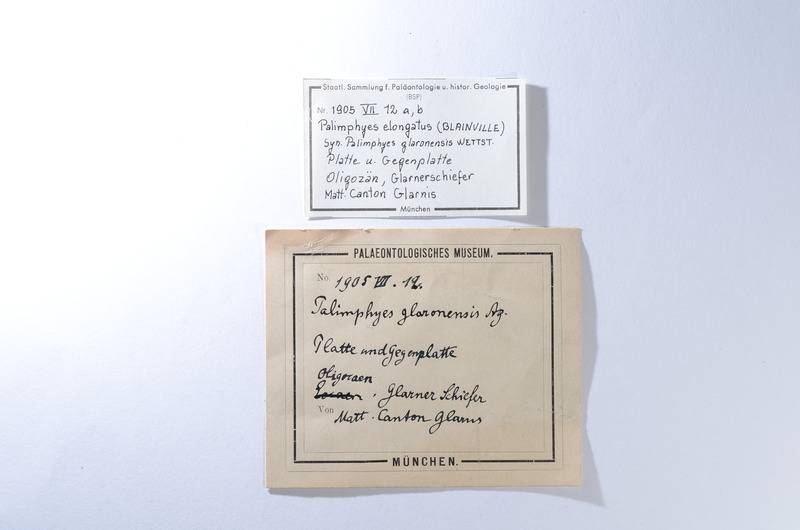 Staatl. Sammlung f. Paläontologie u. histor. Geologie
(BSP)
Nr. 1905 VII 12 a, b
Palimphyes elongatus (BLAINVILLE)
Syn. Palimphyes glaronensis WETTST.
Platte u. Gegenplatte
Oligozän, Glarnerschiefer
Matt. Canton Glarnis
München
PALAEONTOLOGISCHES MUSEUM.
No. 1905 VII. 12.
Palimphyes glaronensis Ag.
Platte und Gegenplatte
Oligocaen
Eocaen. Glarner Schiefer
Von Matt. Canton Glarus
MÜNCHEN.